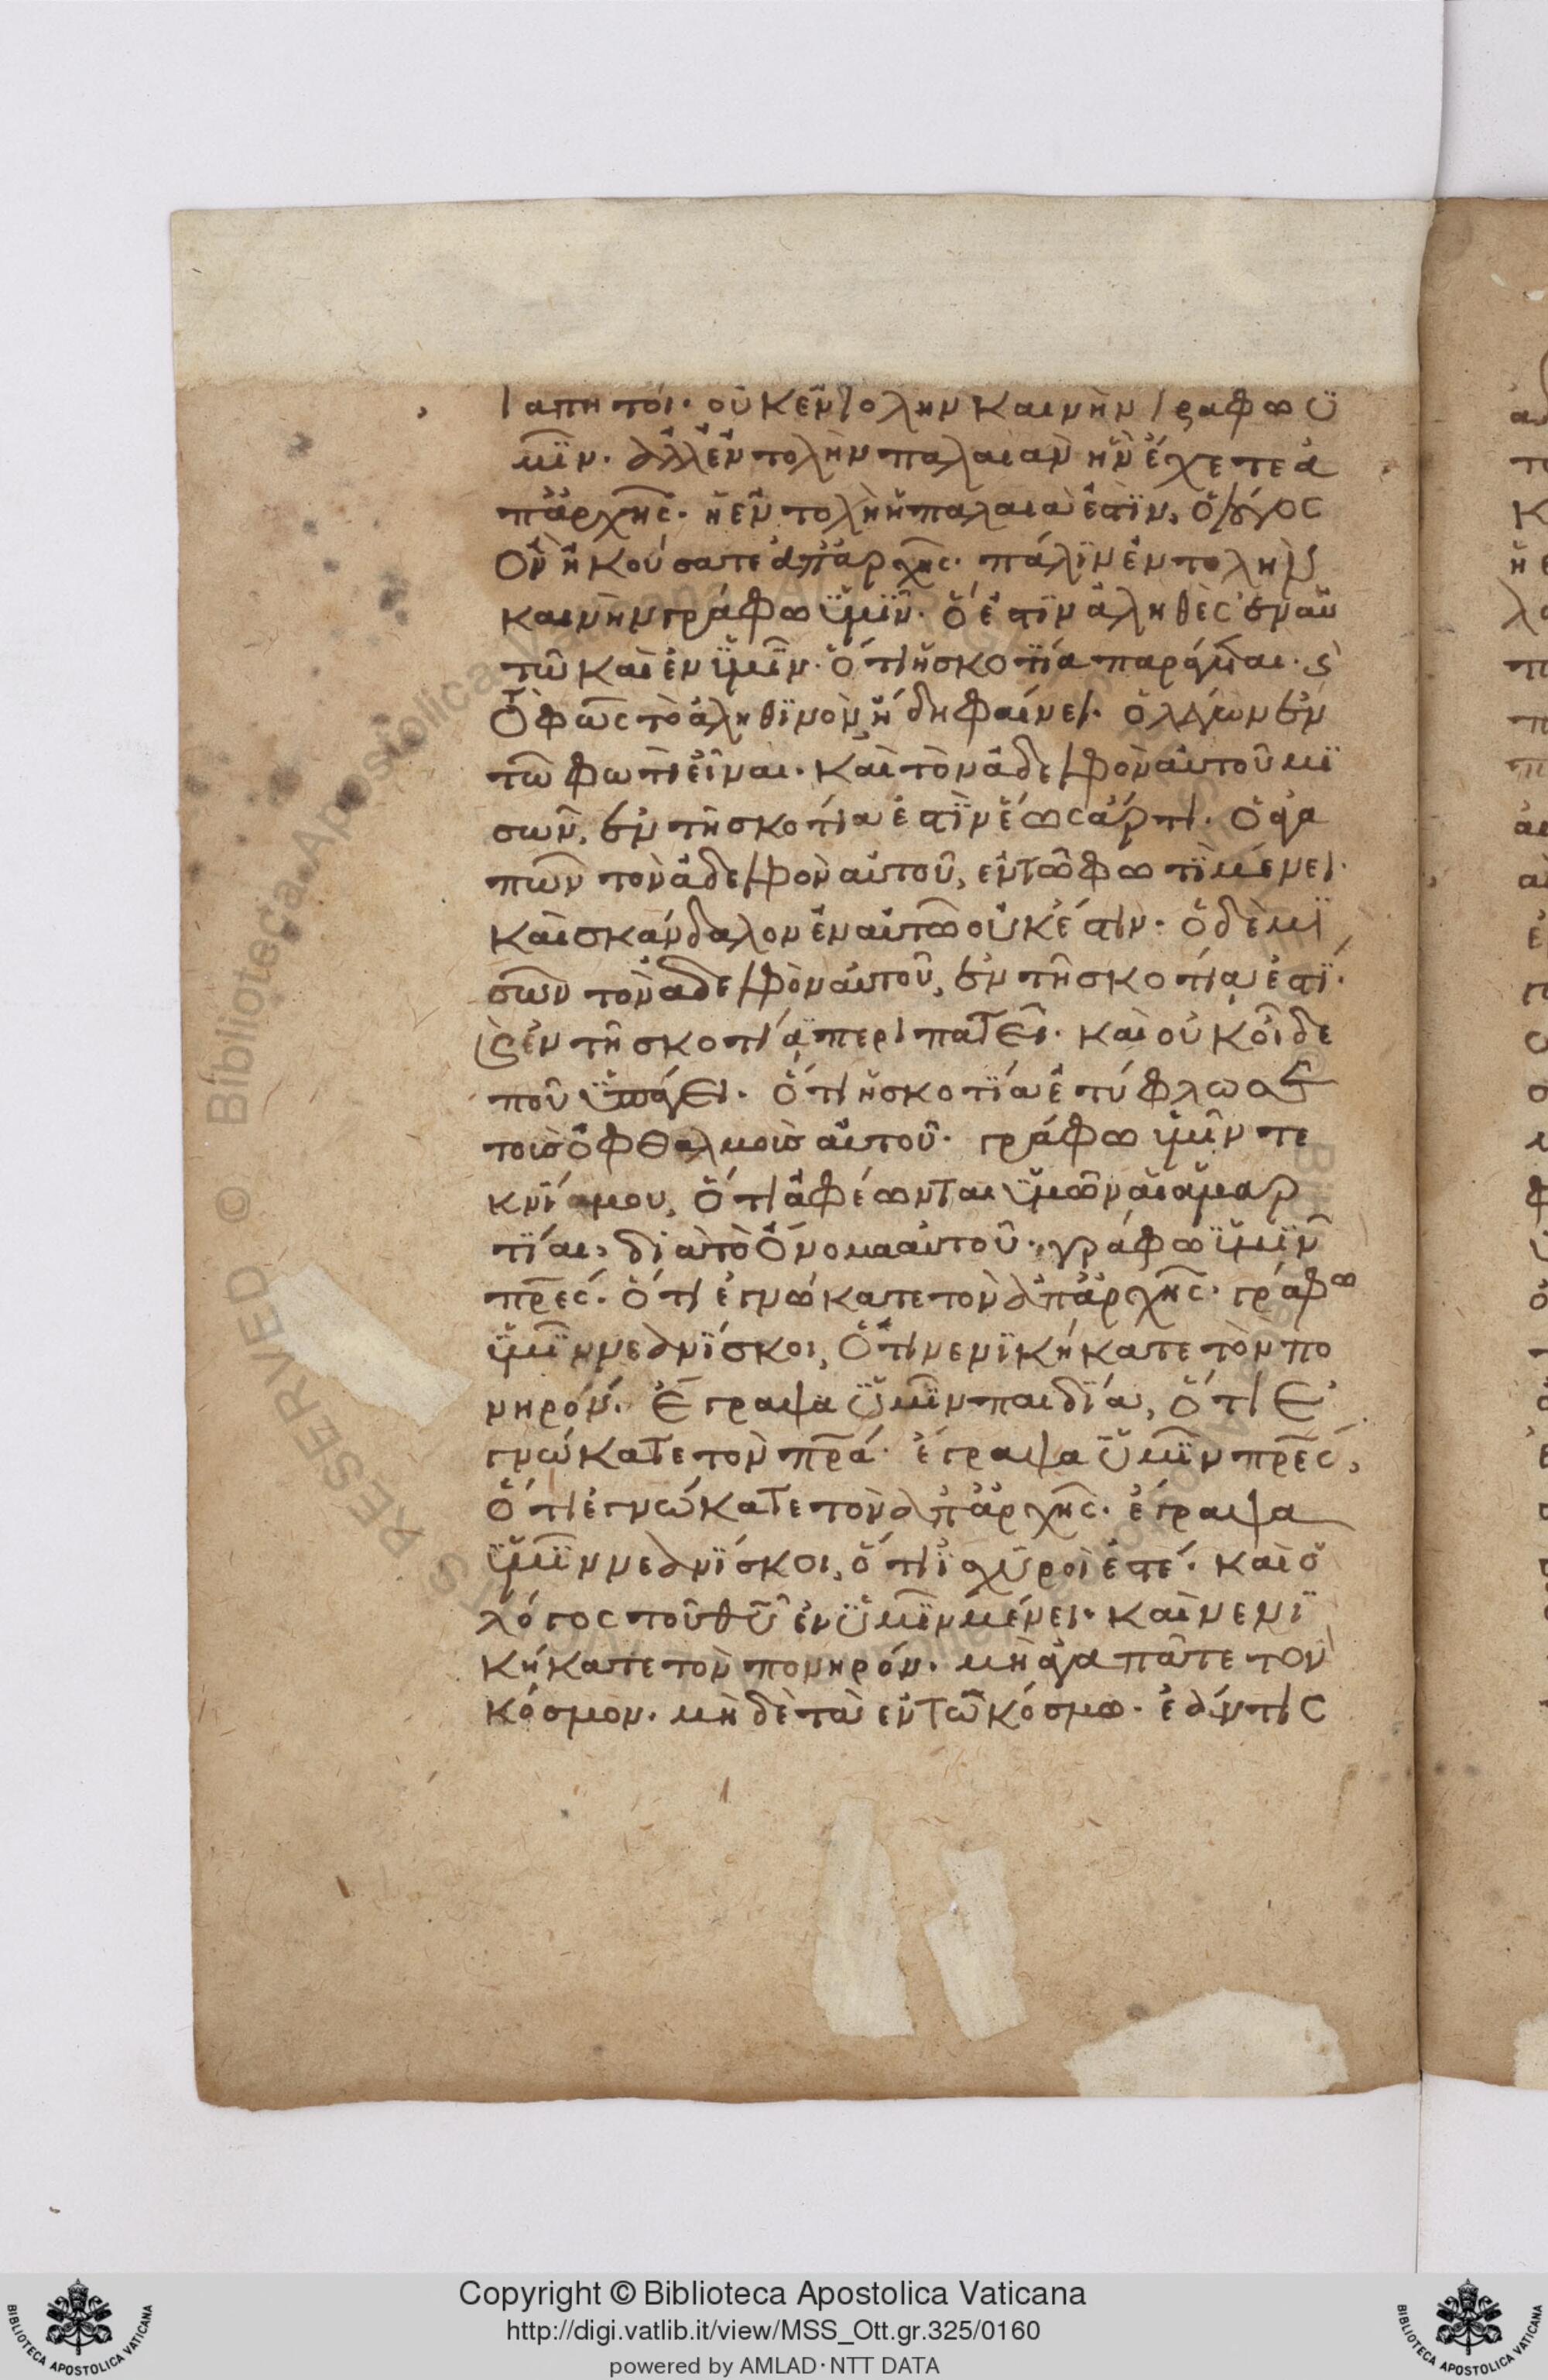 γαπητοί· οὐκ ἐντολὴν καινὴν γράφω ὑ
μῖν· ἀλλ' ἐντολὴν παλαιὰν ἣν ἔχετε ἀ
π' ἀρχῆς· ἡ ἐντολὴ ἡ παλαιὰ ἐστὶν, ὁ λόγος
ὃν ἠκούσατε ἀπ' ἀρχῆς· πάλιν ἐντολὴν
καινὴν γράφω ὑμῖν· ὅ ἐστιν ἀληθὲς ἐν αὐ
τῶ καὶ ἐν ὑμῖν· ὅτι ἡ σκοτία παράγεται· ϗ
τὸ φῶς τὸ ἀληθινὸν ἤδη φαίνει· ὁ λέγων ἐν
τῶ φωτὶ εἶναι· καὶ τὸν ἀδελφὸν αὐτοῦ μι
σῶν, ἐν τῆ σκοτία ἐστὶν ἕως ἄρτι· ὁ ἀγα
πῶν τὸν ἀδελφὸν αὐτοῦ, ἐν τῶ φωτὶ μένει·
καὶ σκάνδαλον ἐν αὐτῶ οὐκ ἔστιν· ὁ δὲ μι
σῶν τὸν ἀδελφὸν αὐτοῦ, ἐν τῆ σκοτία ἐστί·
ϗ ἐν τῆ σκοτία περιπατεῖ· καὶ οὐκ οἶδε
ποῦ ὑπάγει· ὅτι ἡ σκοτία ἐτύφλωσε
τοὶς ὀφθαλμοὶς αὐτοῦ· γράφω ὑμῖν τε
κνία μου, ὅτι ἀφέωνται ὑμῶν αἱ ἁμαρ
τίαι, διὰ τὸ ὄνομα αὐτοῦ· γράφω ὑμῖν
πρ̅ες· ὅτι ἐγνώκατε τὸν ἀπ' ἀρχῆς· γράφω
ὑμῖν νεανίσκοι, ὅτι νενικήκατε τὸν πο
νηρόν· ἔγραψα ὑμῖν παιδία, ὅτι ἐ
γνώκατε τὸν πρ̅α· ἔγραψα ὑμῖν πρ̅ες,
ὅτι ἐγνώκατε τὸν ἀπ' ἀρχῆς· ἔγραψα
ὑμῖν νεανίσκοι, ὅτι ἰσχυροί ἐστέ· καὶ ὁ
λόγος τοῦ θ̅υ ἐν ὑμῖν μένει· καὶ νενι
κήκατε τὸν πονηρόν· μὴ ἀγαπᾶτε τὸν
κόσμον· μὴ δὲ τὰ ἐν τῶ κόσμω· ἐάν τις
Copyright © Biblioteca Apostolica Vaticana
http://digi.vatlib.it/view/MSS_Ott.gr.325/0160
powered by AMLAD·NTT DATA